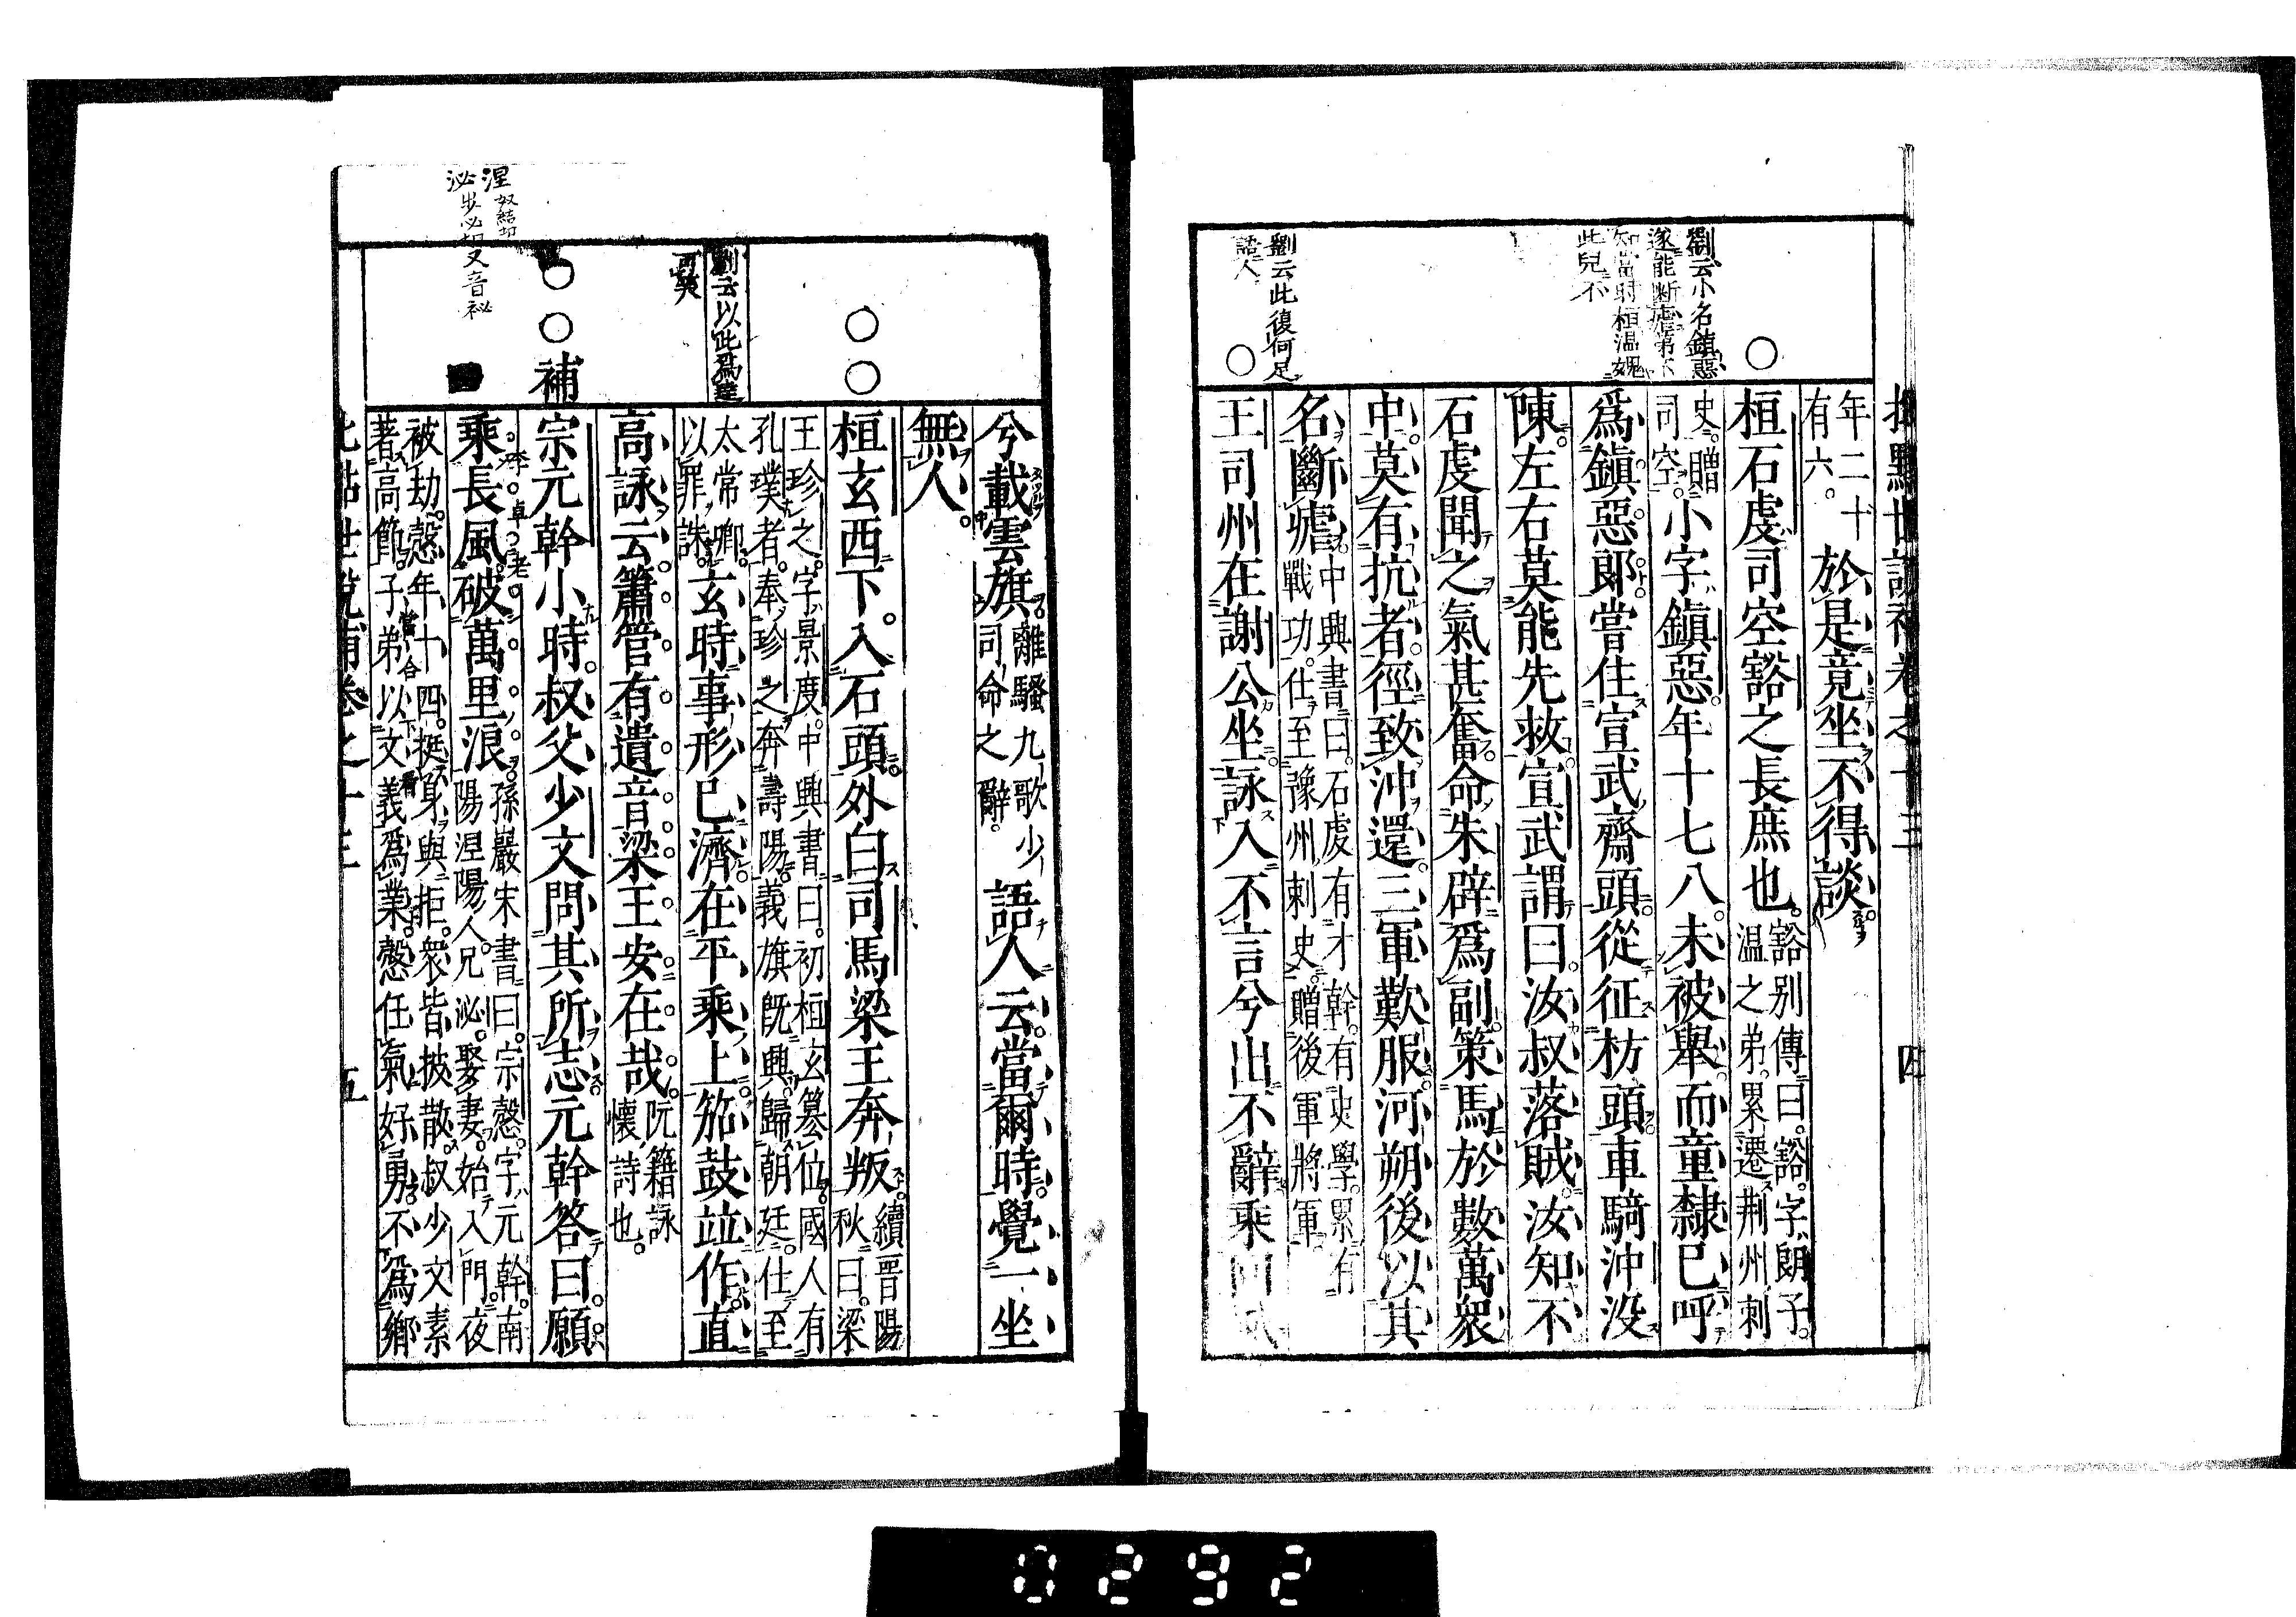 批點世說補卷之十三 四
年二十
有六。於是竟坐不得談。
桓石虔司空豁之長庶也。豁別傳曰。豁。字朗子。
溫之弟。累遷荊州刺
史。贈
司空。小字鎮惡。年十七八。未被舉。而童隸已呼
爲鎮惡郎。嘗住宣武齋頭。從征枋頭。車騎沖没
陳。左右莫能先救。宣武謂曰。汝叔落賊。汝知不
石虔聞之。氣甚奮。命朱辟爲副。策馬於數萬衆
中。莫有抗者。徑致沖還。三軍歎服。河朔後以其
名斷瘧。中興書曰。石虔有才幹。有史學。累有
戰功。仕至豫州刺史。贈後軍將軍。
王司州在謝公坐。詠入不言兮出不辭。乘回風
劉云小名鎮惡
遂能斷瘧第不
知當時桓溫媿
此兒不
劉云此復何足
語人
兮載雲旗。離騷九歌少
司命之辭。語人云。當爾時。覺一坐
無人。
桓玄西下。入石頭。外白。司馬梁王奔叛。續晉陽
秋曰。梁
王珍之。字景度。中興書曰。初桓玄篡位。國人有
孔璞者。奉珍之奔壽陽。義旗既興。歸朝廷。仕至
太常卿。
以罪誅。玄時事形已濟。在平乘上。笳鼓竝作。直
高詠云。簫管有遺音。梁王安在哉。阮籍詠
懷詩也。
宗元幹小時。叔父少文問其所志。元幹答曰。願
乘長風。破萬里浪。孫嚴宋書曰。宗慤。字元幹。南
陽涅陽人。兄泌。娶妻。始入門。夜
被劫。慤年十四。挺身與拒。衆皆披散。叔少文素
著高節。子弟以文義爲業。慤任氣好勇。不爲鄉
批點世說補卷之十三 五
劉云以此爲達
可笑
補
涅 奴結切
泌 步必切又音祕
李卓老
0292